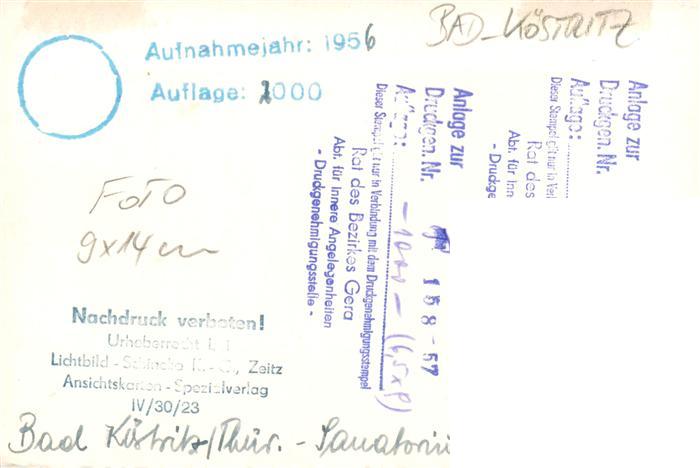 BAD-KÖSTRITZ
Aufnahmejahr: 1956
Auflage: 2000
FOTO
9x14 cm
Nachdruck verboten!
Urheberrecht
Lichtbild - K.-G., Zeitz
Ansichtskarten - Spezialverlag
IV/30/23
Bad Köstritz/Thür. - Sanatorium
Anlage zur
Druckgen. Nr. 158-57
Auflage: - 1000 - (6,5xP)
Dieser Stempel gilt nur in Verbindung mit dem Druckgenehmigungsstempel
Rat des Bezirkes Gera
Abt. für Innere Angelegenheiten
- Druckgenehmigungsstelle -
Anlage zur
Druckgen. Nr.
Auflage:
Dieser Stempel gilt nur in Verl
Rat des
Abt. für Inn
- Druckge